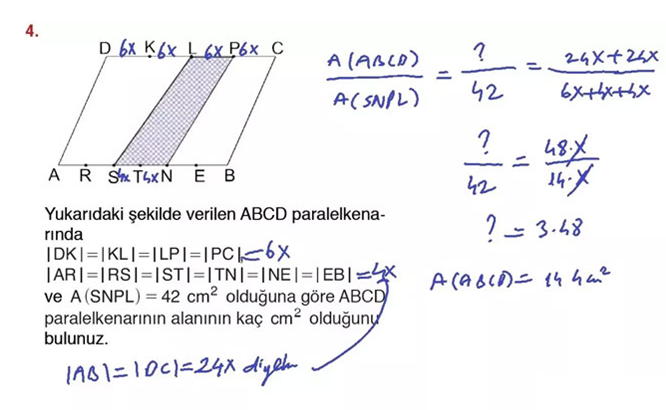 4.
D 6x K 6x L 6x P 6x C
A R S 4x T 4x N E B
Yukarıdaki şekilde verilen ABCD paralelkena-
rında
|DK|=|KL|=|LP|=|PC|=6x
|AR|=|RS|=|ST|=|TN|=|NE|=|EB|=4x
ve A (SNPL) = 42 cm² olduğuna göre ABCD
paralelkenarının alanının kaç cm² olduğunu
bulunuz.
|AB|=|DC|=24x diyelim
A(ABCD)/A(SNPL) = ?/42 = 24x+24x/6x+4x+4x
?/42 = 48.x/14.x
? = 3.48
A(ABCD)= 144cm²